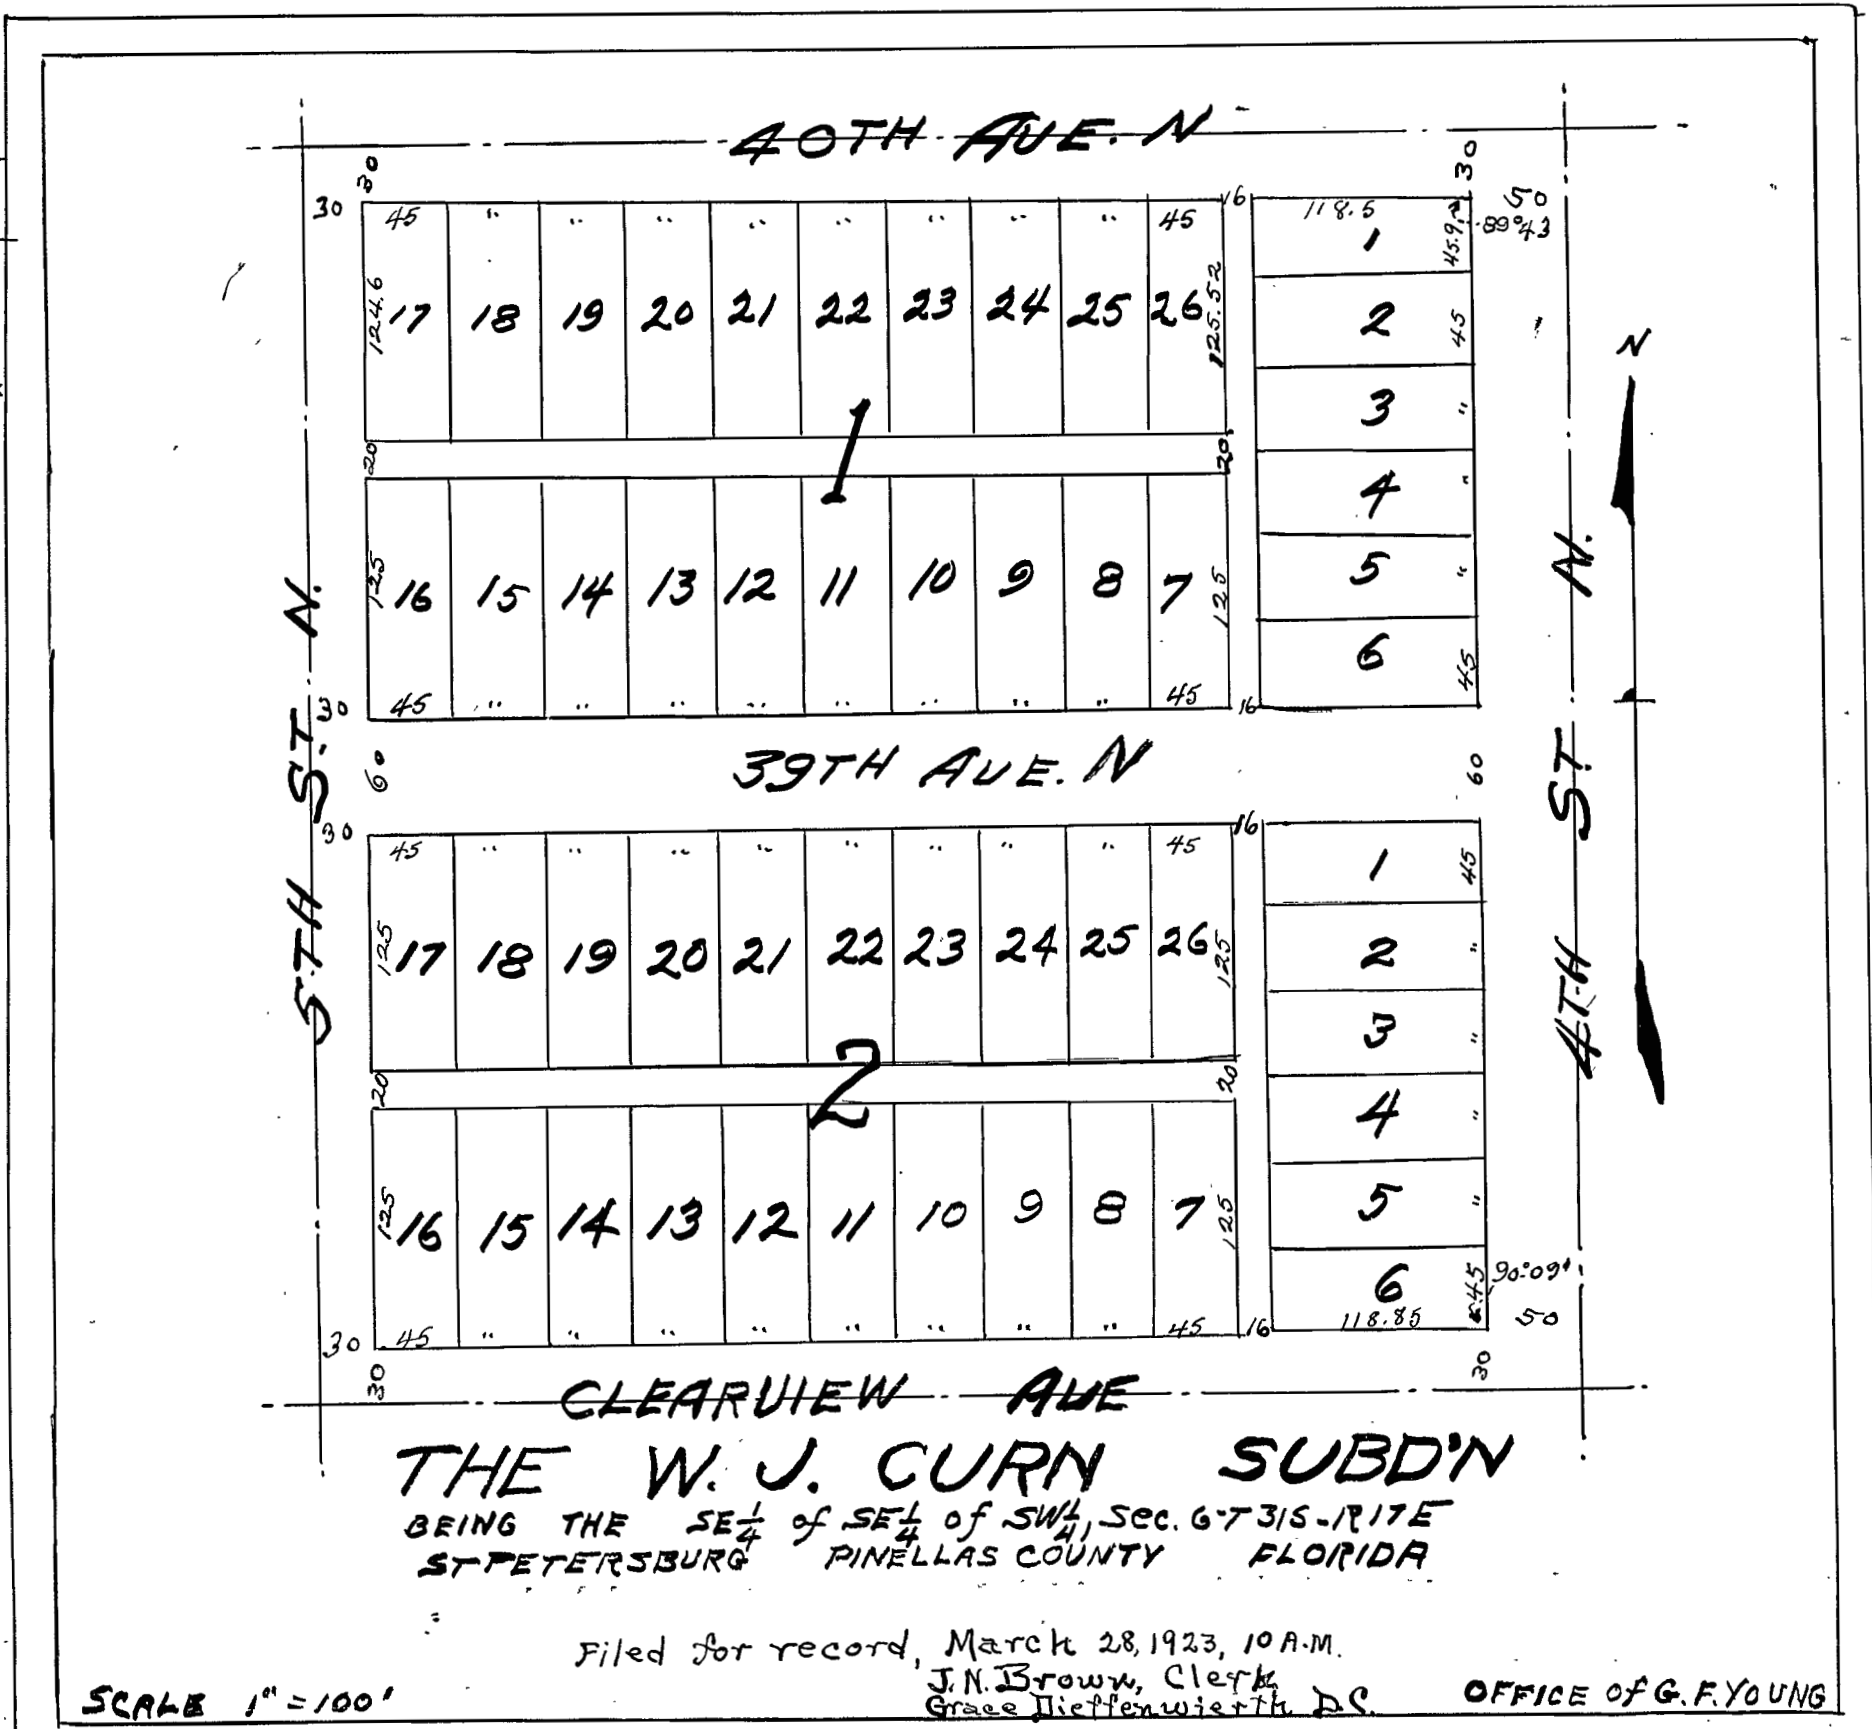 40TH AVE. N
30 30
30 50
45 " " " " " " " " 45 16 118.5 45.9
89°43
124.6 17 18 19 20 21 22 23 24 25 26 125.52
1
2 45
3 "
4 "
5 "
6 45
N
1
20 20
125 16 15 14 13 12 11 10 9 8 7 125
30 45 " " " " " " " " 45 16
5TH ST. N.
4TH ST. N.
60 39TH AVE. N 60
30 45 " " " " " " " " 45 16
125 17 18 19 20 21 22 23 24 25 26 125
1 45
2 "
3 "
4 "
5 "
6 45 90°09'
118.85 50
2
20 20
125 16 15 14 13 12 11 10 9 8 7 125
30 45 " " " " " " " " 45 16
30 30
CLEARVIEW AVE
THE W. J. CURN SUBD'N
BEING THE SE 1/4 of SE 1/4 of SW 1/4, Sec. 6-T31S-R17E
ST PETERSBURG PINELLAS COUNTY FLORIDA
Filed for record, March 28, 1923, 10 A.M.
J. N. Brown, Clerk
Grace Dieffenwierth D.C.
SCALE 1" = 100'
OFFICE of G. F. YOUNG